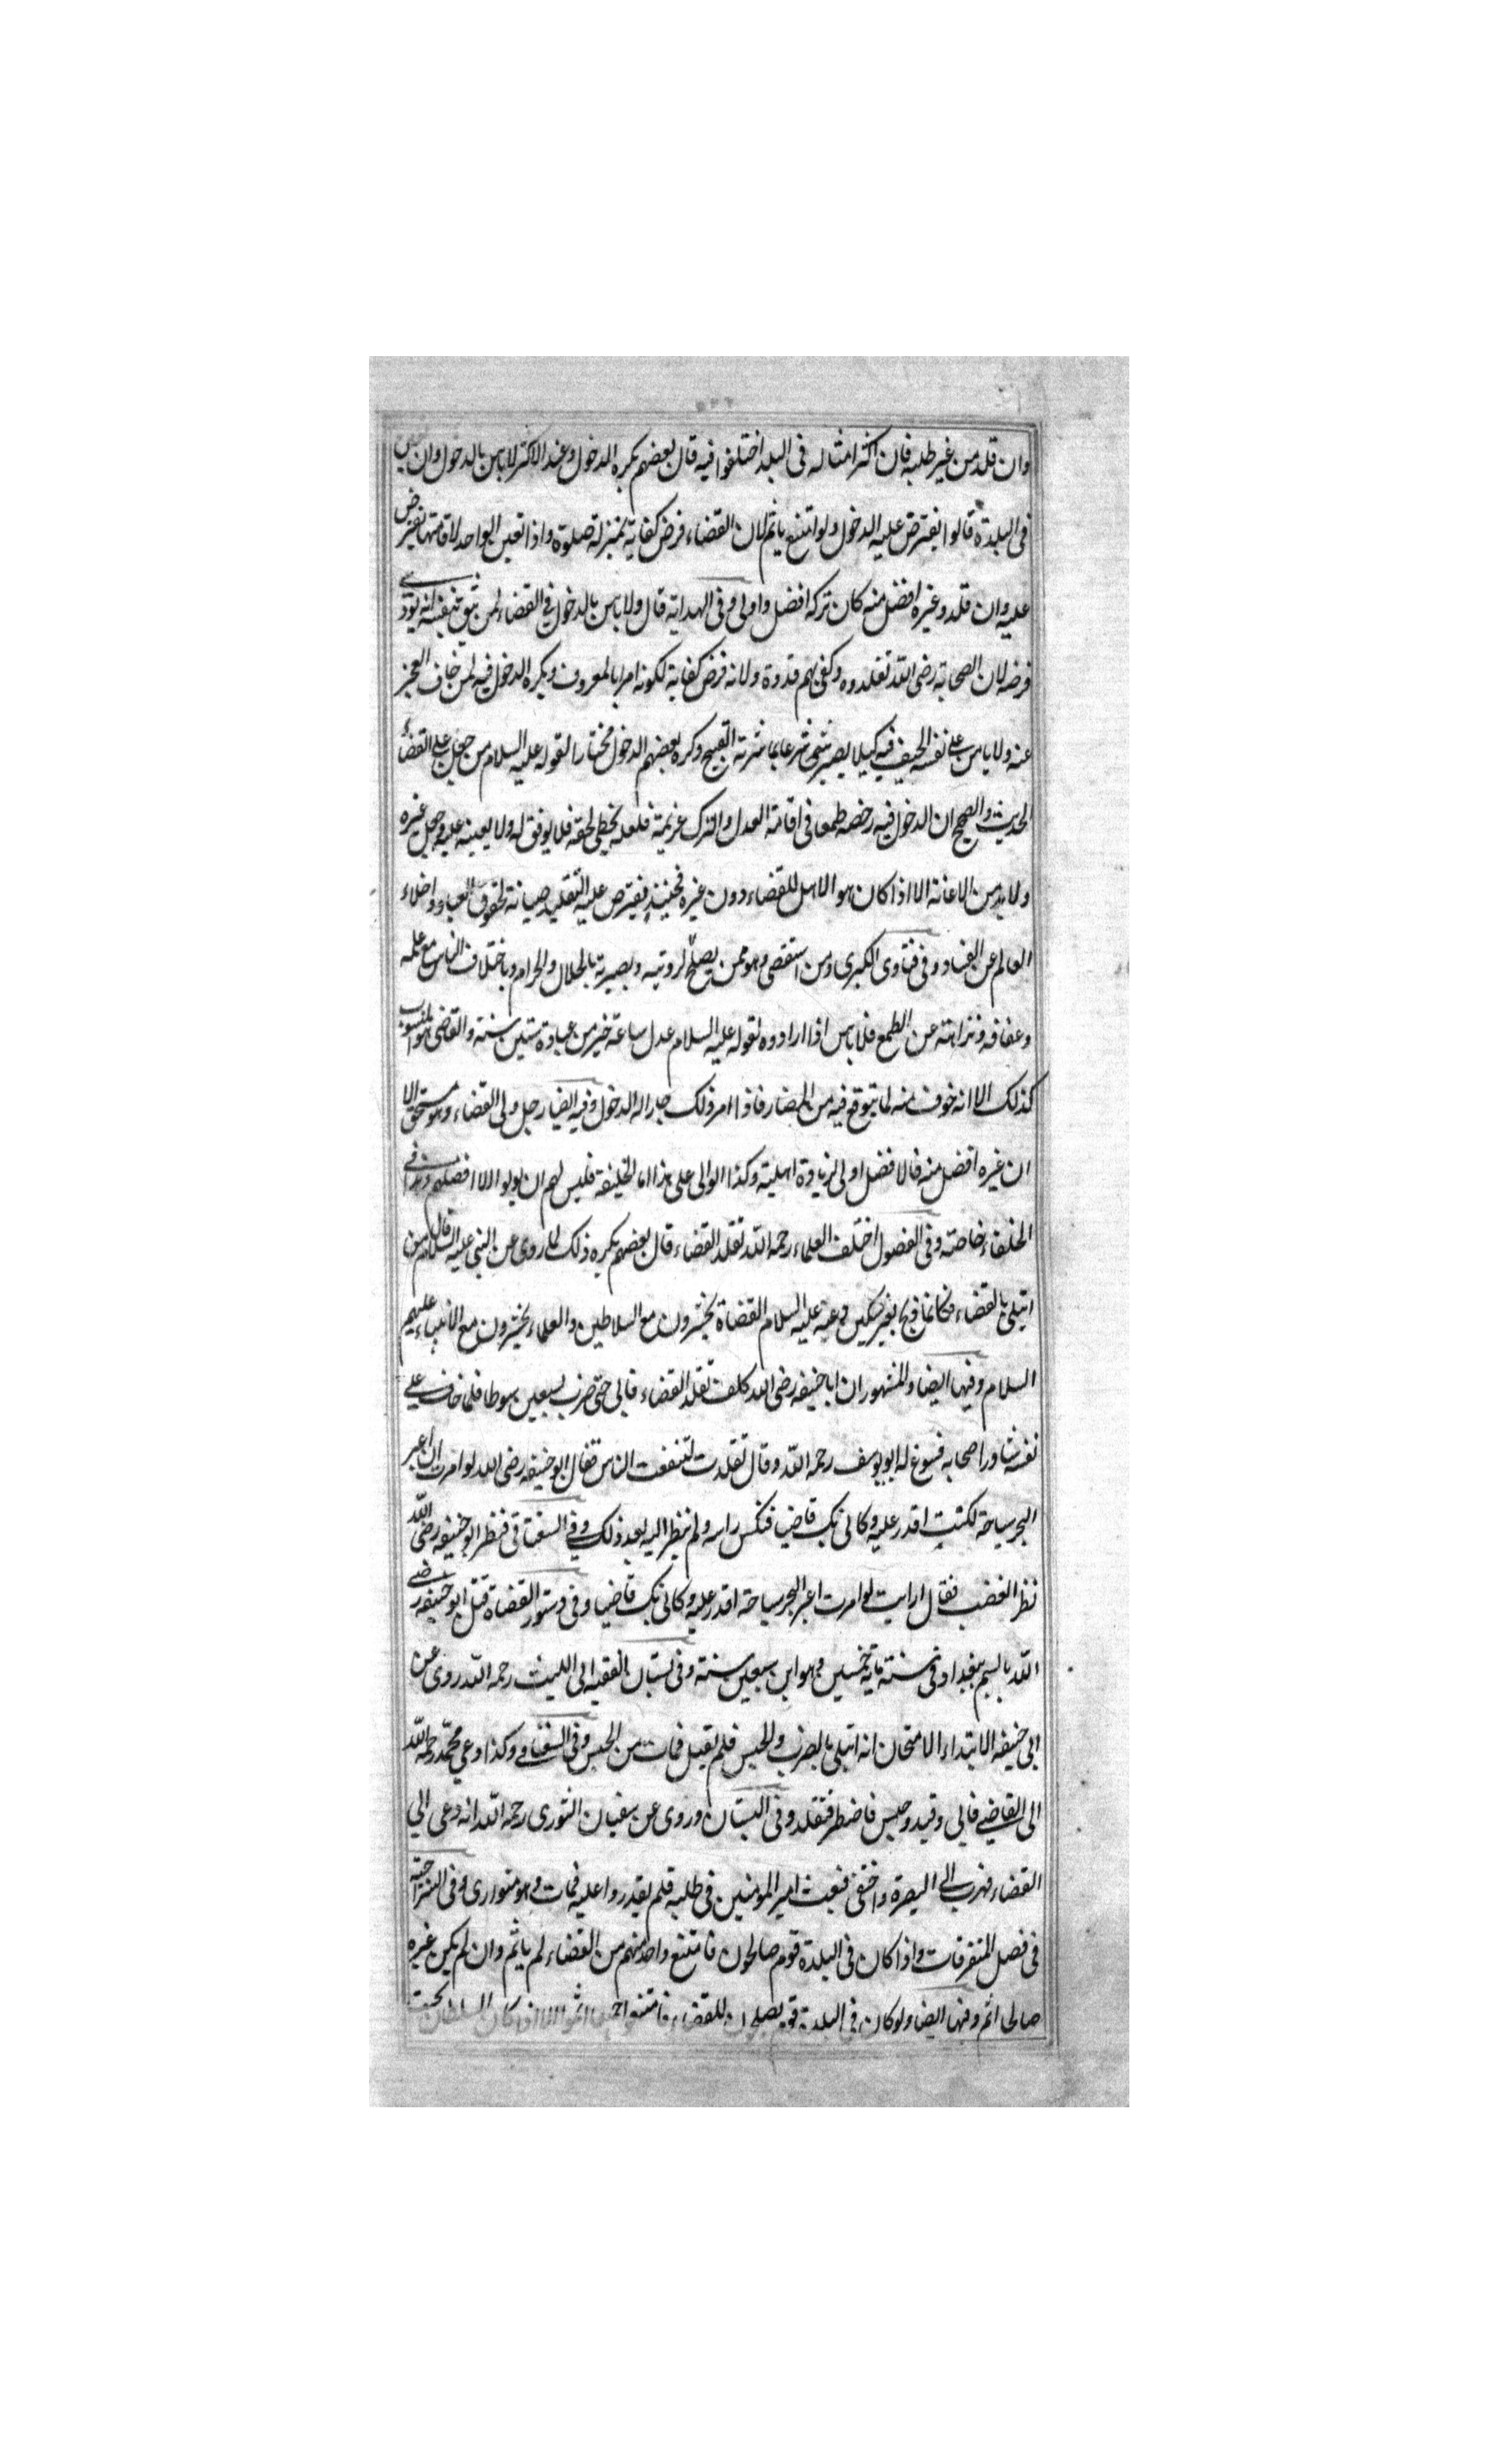 وان قلد من غير طلبه فان اكثر امثاله فى البلد اختلفوا فيه قال بعضهم يكره الدخول وعند الاكثر لا باس بالدخول وان
فى البلدة قالوا يفترض عليه الدخول ولو امتنع ياثم لان القضاء فرض كفاية بمنزلة صلوة واذا تعين الواحد لاقامتها يفترض
عليه وان قلد وغيره افضل منه كان تركه افضل واولى وفى الهداية قال ولا باس بالدخول في القضاء لمن يثق بنفسه انه يودى
فرضه لان الصحابة رضى الله تقلدوه وكفى بهم قدوة ولانه فرض كفاية لكونه امرا بالمعروف ويكره الدخول فيه لمن خاف العجز
عنه ولا يامن على نفسه الحيف فيه كيلا يصير شرعا بمباشرته القبيح وكره بعضهم الدخول مختارا لقوله عليه السلام من جعل على القضاء
الحديث والصحيح ان الدخول فيه رخصه طمعا فى اقامة العدل والترك عزيمة فلعله يخطى لحقه فلا يوفق له ولا يعينه عليه وجعل غيره
ولا بد من الاعانة الا اذا كان هو الاهل للقضاء دون غيره فحينئذ يفترض عليه التقليد صيانة لحقوق العباد واخلاء
العالم عن الفساد وفى فتاوى الكبرى ومن استقضى وهو ممن يصلح لروتيه وبصيرته بالحلال والحرام وباختلاف الناس مع علمه
وعفافه ونزاهته عن الطمع فلا باس اذا ارادوه لقوله عليه السلام عدل ساعة خير من عبادة ستين سنة والقاضى المنسوب
كذلك الا انه خوف منه لما يتوقع فيه من المضار فاذا امر ذلك جاز له الدخول وفيه ايضا رجل ولى القضاء وهو مستحق الا
ان غيره افضل منه فالافضل اولى لزيادة اهليته وكذا الوالى على هذا اما الخليفة فليس لهم ان يولوا الا افضلهم وهذا فى
الخلفاء خاصة وفى الفصول اختلف العلماء رحمه الله تقلد القضاء قال بعضهم يكره ذلك لما روى عن النبى عليه السلام قال من
ابتلى بالقضاء فكانما ذبح بغير سكين وعنه عليه السلام القضاة يحشرون مع السلاطين والعلماء يحشرون مع الانبياء عليهم
السلام وفيها ايضا والمشهور ان ابا حنيفه رضى الله كلف تقلد القضاء فابى حتى ضرب سبعين سوطا فلما خاف على
نفسه شاور اصحابه فسوغ له ابو يوسف رحمه الله وقال تقلدت لتنفعت الناس فقال ابو حنيفه رضى الله لو امرت ان اعبر
البحر سياحة لكنت اقدر عليه وكانى بك قاضيا فنكس راسه ولم ينظر اليه بعد ذلك وفي السغناقى فنظر ابو حنيفه رضى الله
نظر الغضب فقال ارايت لو امرت اعبر البحر سياحة اقدر عليه وكانى بك قاضيا وفى دستور القضاة قتل ابو حنيفه رضى
الله بالسم ببغداد فى سنة ماية خمسين وهو ابن سبعين سنة وفى بستان الفقيه ابى الليث رحمه الله روى عن
ابى حنيفه الابتداء الامتحان انه ابتلى بالضرب والحبس فلم يقبل فمات من الحبس وفى السغناقى وكذا دعي محمد رحمه الله
الى القاضي فابى وقيد وحبس فاضطر فتقلد وفى البستان وروى عن سفيان الثورى رحمه الله انه دعى الى
القضاء فهرب الى البصرة واختفى فبعث امير المومنين فى طلبه فلم يقدروا عليه فمات وهو متوارى وفى السراجيه
فى فصل المتفرقات واذا كان فى البلدة قوم صالحون فامتنع واحد منهم من القضاء لم ياثم وان لم يكن غيره
صالحا اثم وفيها ايضا ولو كان فى البلدة قوم يصلحون للقضاء فامتنعوا اثموا الا اذا كان السلطان